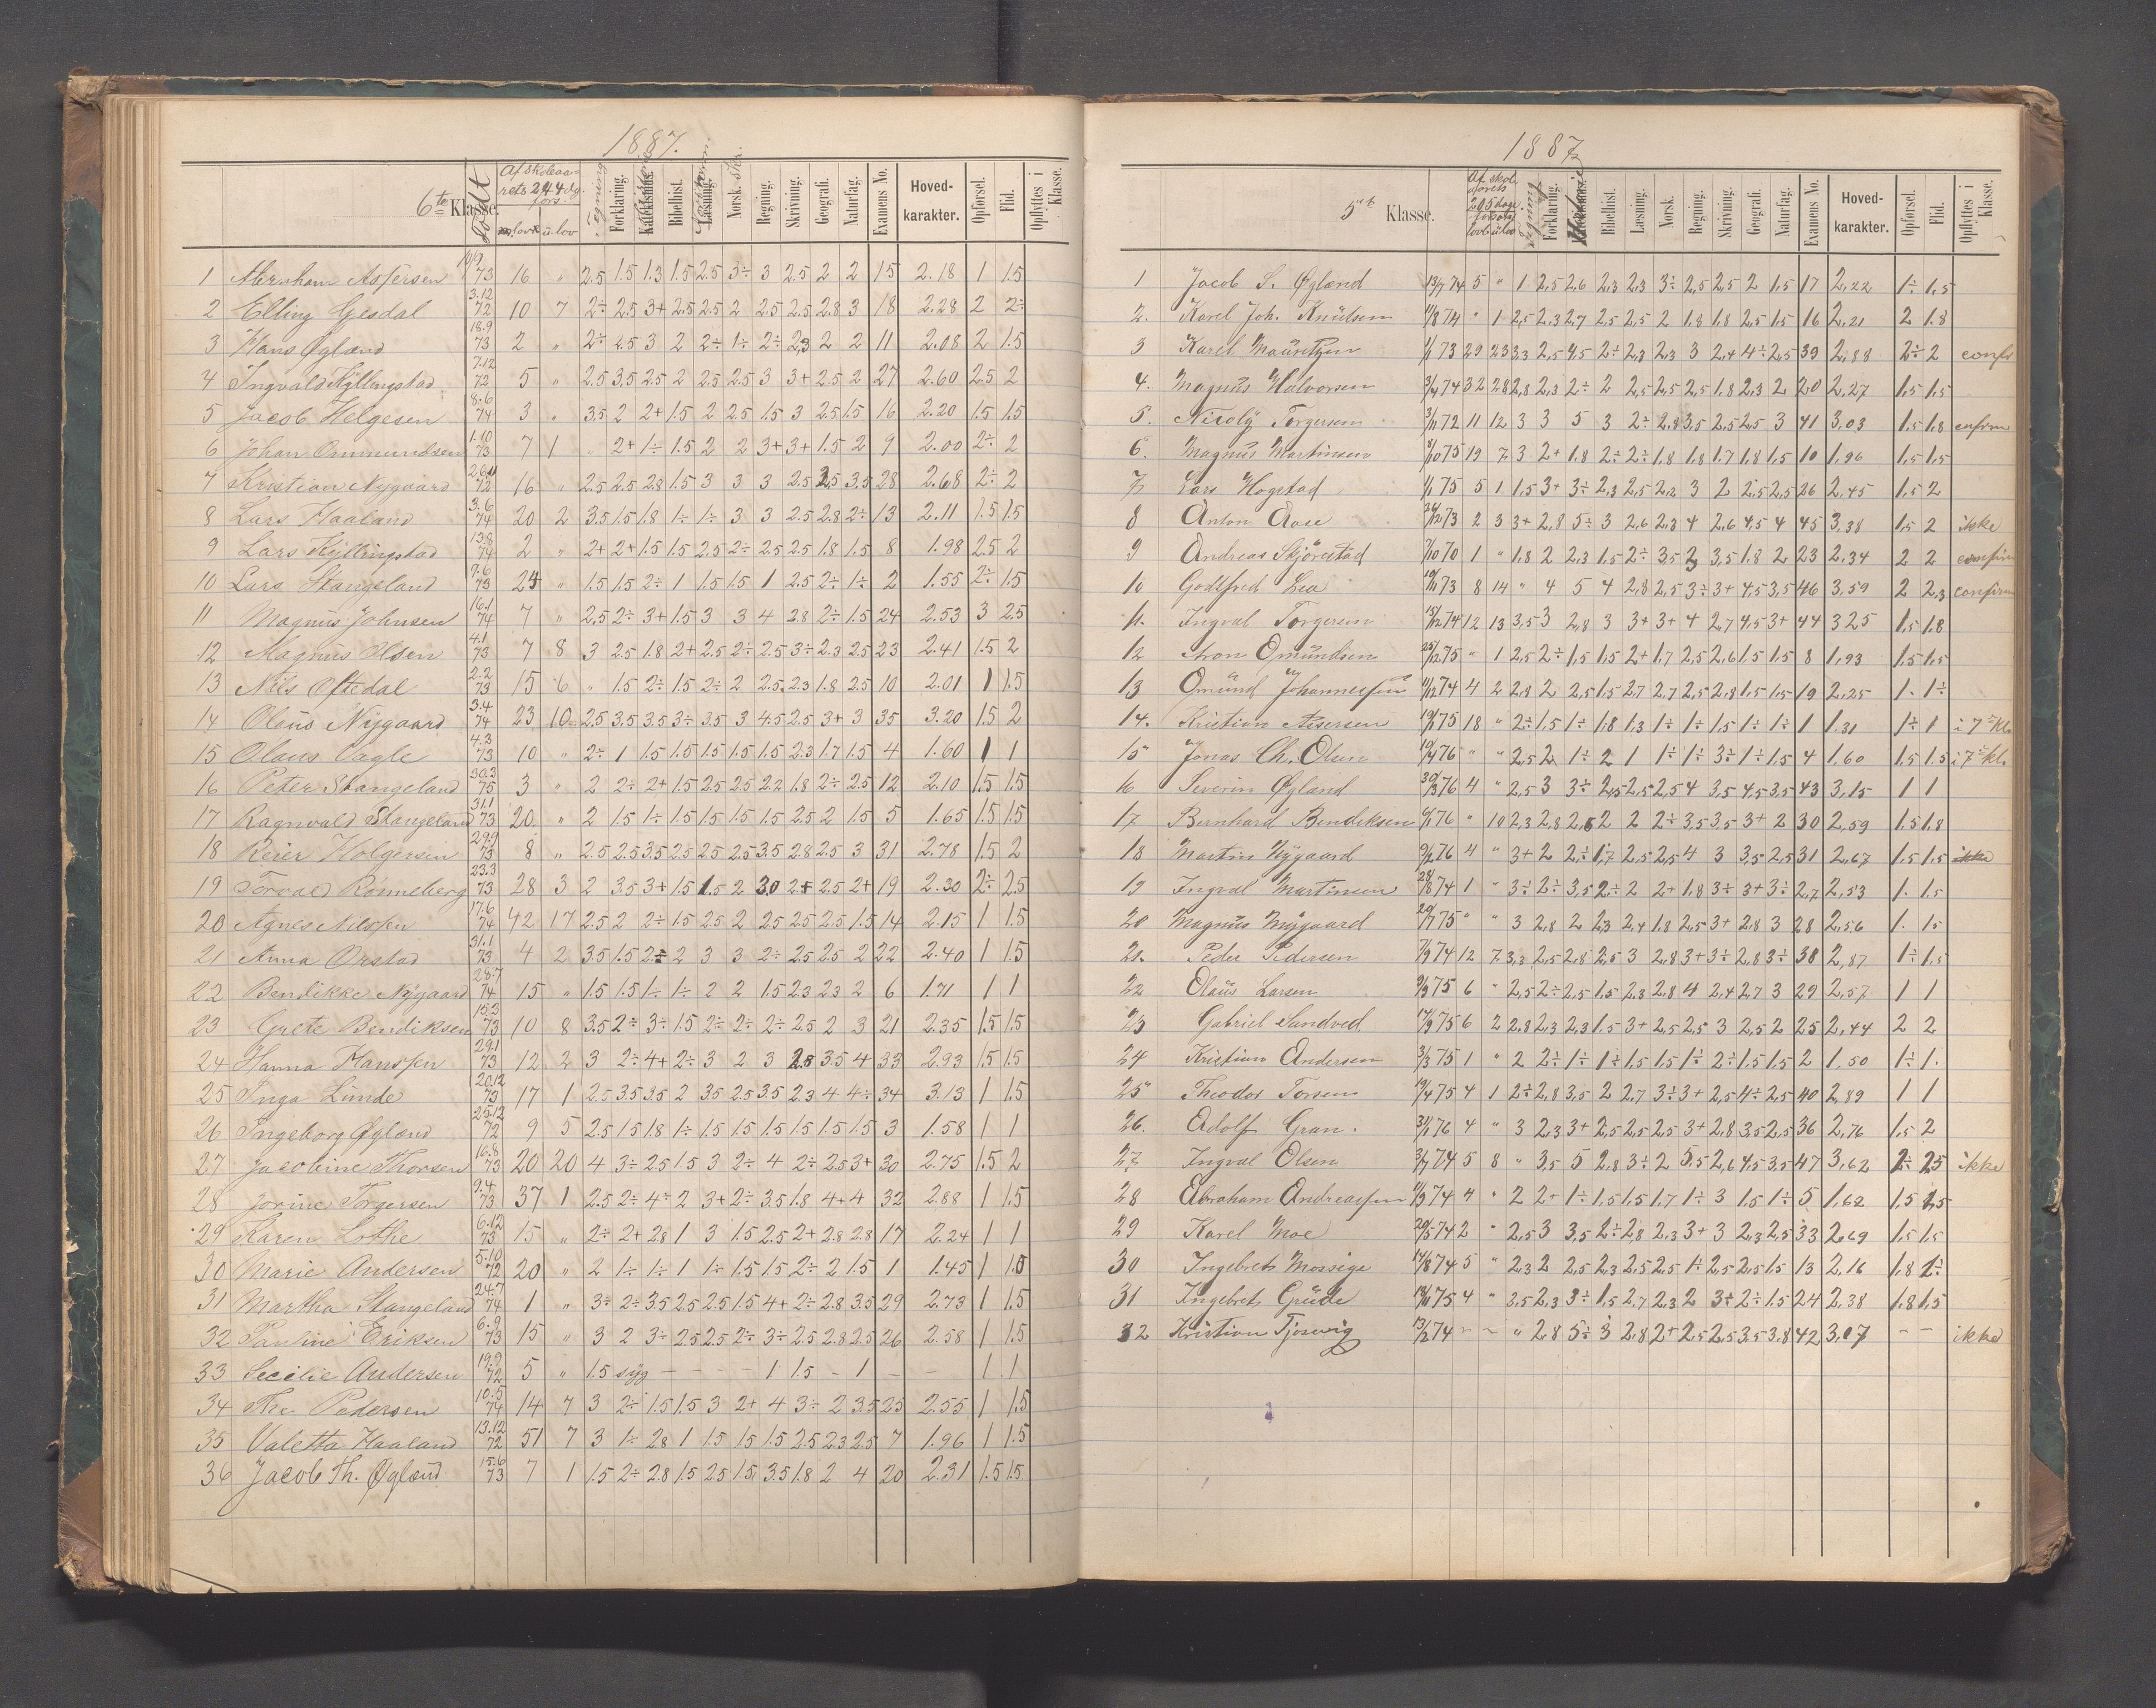 1887.
6te Klasse.
Født
Af skoleaa-
rets 244 dg.
fors.
m. lov u. lov
Tegning
Forklaring.
Bibelhist.
Læsning.
Norsk. Skr.
Regning.
Skrivning.
Geografi.
Naturfag.
Examens No.
Hoved-
karakter.
Opførsel.
Flid.
Opflyttes i
Klasse.
1 Abraham Aspersen 10.9 73 16 " 2.5 1.5 1.3 1.5 2.5 3÷ 3 2.5 2 2 15 2.18 1 1.5
2 Elling Gesdal 3.12 72 10 7 2÷ 2.5 3+ 2.5 2.5 2 2.5 2.5 2.8 3 18 2.28 2 2÷
3 Hans Øgland 18.9 73 2 " 2÷ 2.5 3 2 2÷ 1÷ 2÷ 2.3 2 2 11 2.08 2 1.5
4 Ingvald Kyllingstad 7.12 72 5 " 2.5 3.5 2.5 2 2.5 2.5 3 3+ 2.5 2 27 2.60 2.5 2
5 Jacob Helgesen 8.6 74 3 " 3.5 2 2+ 1.5 2 2.5 1.5 3 2.5 1.5 16 2.20 1.5 1.5
6 Johan Ommundsen 1.10 73 7 1 " 2+ 1÷ 1.5 2 2 3+ 3+ 1.5 2 9 2.00 2÷ 2
7 Kristian Nygaard 26.11 72 16 " 2.5 2.5 2.8 1.5 3 3 3 2.5 2.5 3.5 28 2.68 2÷ 2
8 Lars Haaland 3.6 74 20 2 3.5 1.5 1.8 1÷ 1÷ 3 3 2.5 2.8 2÷ 13 2.11 1.5 1.5
9 Lars Kyllingstad 13.8 74 2 " 2+ 2+ 1.5 1.5 2.5 2÷ 2.5 2.5 1.8 1.5 8 1.98 2.5 2
10 Lars Stangeland 9.6 73 24 " 1.5 1.5 2÷ 1 1.5 1.5 1 2.5 2÷ 1÷ 2 1.55 2÷ 1.5
11 Magnus Johnsen 16.1 74 7 " 2.5 2÷ 3+ 1.5 3 3 4 2.8 2÷ 1.5 24 2.53 3 2.5
12 Magnus Olsen 4.1 73 7 8 3 2.5 1.8 2+ 2.5 2÷ 2.5 3÷ 2.3 2.5 23 2.41 1.5 2
13 Nils Oftedal 2.2 73 15 6 " 1.5 2÷ 1.5 2÷ 2 2.5 2.3 1.8 2.5 10 2.01 1 1.5
14 Olaus Nygaard 3.4 74 23 10 2.5 3.5 3.5 3÷ 3.5 3 4.5 2.5 3+ 3 35 3.20 1.5 2
15 Olaus Vagle 4.3 73 10 " 2÷ 1 1.5 1.5 1.5 1.5 1.5 2.3 1.7 1.5 4 1.60 1 1
16 Peter Stangeland 30.3 75 3 " 2 2÷ 2+ 1.5 2.5 2.5 2.2 1.8 2÷ 2.5 12 2.10 1.5 1.5
17 Ragnvald Stangeland 31.1 73 20 " 2 1.5 1÷ 1.5 1.5 1.5 1.5 2.5 2 1.5 5 1.65 1.5 1.5
18 Reier Holgersen 29.9 73 8 " 2.5 2.5 3.5 2.5 2.5 2.5 3.5 2.8 2.5 3 31 2.78 1.5 2
19 Torvald Rønneberg 23.3 73 28 3 2 3.5 3+ 1.5 1.5 2 3.0 2+ 2.5 2+ 19 2.30 2÷ 2.5
20 Agnes Nilssen 17.6 74 42 17 2.5 2 2÷ 1.5 2.5 2 2.5 2.5 2.5 1.5 14 2.15 1 1.5
21 Anna Orstad 31.1 73 4 2 3.5 1.5 2÷ 2 3 3 2÷ 2.5 2.5 2 22 2.40 1 1.5
22 Bendikke Nygaard 28.7 74 15 " 1.5 1.5 1÷ 1÷ 2 2 1.5 2.3 2.3 2 6 1.71 1 1
23 Grete Bendiksen 15.3 73 10 8 3.5 2÷ 3÷ 1.5 2÷ 2÷ 2÷ 2.5 2 3 21 2.35 1.5 1.5
24 Hanna Hanssen 29.1 73 12 2 3 2÷ 4+ 2÷ 3 2 3 2.8 3.5 4 33 2.93 1.5 1.5
25 Inga Lunde 20.12 73 17 1 2.5 3.5 3.5 2 3.5 2.5 3.5 2.3 4 4÷ 34 3.13 1 1.5
26 Ingeborg Øgland 25.12 72 9 5 2.5 1.5 1.8 1÷ 1.5 1.5 1.5 1.5 1.5 1.5 3 1.58 1 1
27 Jacobine Thorsen 16.8 73 20 20 4 3÷ 2.5 1.5 3 2÷ 4 2÷ 2.5 3+ 30 2.75 1.5 2
28 Jorine Torgersen 9.4 73 37 1 2.5 2÷ 4÷ 2 3+ 2÷ 3.5 1.8 4+ 4 32 2.88 1 1.5
29 Karen Lothe 6.12 73 15 " 2÷ 2+ 2.8 1 3 1.5 2.5 2+ 2.8 2.8 17 2.24 1 1
30 Marie Andersen 5.10 72 20 " 2 1÷ 1÷ 1 1÷ 1.5 1.5 2÷ 2 1.5 1 1.45 1 1.0
31 Martha Stangeland 24.7 74 1 " 3÷ 2÷ 3.5 2.5 2.5 1.5 4+ 2÷ 2.8 3.5 29 2.73 1 1.5
32 Pauline Eriksen 6.9 73 15 " 3 2 3÷ 2.5 2.5 2÷ 3÷ 2.5 2.8 2.5 26 2.58 1 1.5
33 Secilie Andersen 19.9 72 5 " 1.5 syg – – – – 1 1.5 – 1 – – 1 1
34 The Pedersen 10.5 74 14 7 3 2÷ 1.5 1.5 3 2+ 4 3÷ 2 3.5 25 2.55 1 1.5
35 Valetta Haaland 13.12 72 51 7 3 1÷ 2.8 1 1.5 1.5 1.5 2.5 2.3 2.5 7 1.96 1 1.5
36 Jacob Th. Øglend 15.6 73 7 1 1.5 2÷ 2.8 1.5 2.5 1.5 3.5 1.8 2 4 20 2.31 1.5 1.5
1887
5te Klasse.
Af skole
aarets
205 dage
forsømt
lovl. ulov
Tegning
Forklaring.
Bibelhist.
Læsning.
Norsk.
Regning.
Skrivning.
Geografi.
Naturfag.
Examens No.
Hoved-
karakter.
Opførsel.
Flid.
Opflyttes i
Klasse.
1 Jacob S. Øgland 13/7 74 5 " 1 2,5 2,6 2,3 2,3 3÷ 2,5 2,5 2 1,5 17 2,22 1÷ 1,5
2. Karel Joh. Knutsen 11/8 74 " 1 2,5 2,3 2,7 2,5 2,5 2 1.8 1.8 2,5 1,5 16 2,21 2 1.8
3 Karel Mauritzen 1/1 73 29 23 3,3 2,5 4,5 2÷ 2,3 2,3 3 2,4 4÷ 2,5 39 2,88 2÷ 2 confr
4. Magnus Halvorsen 3/4 74 32 28 2,8 2,3 2÷ 2 2,5 2,5 2,5 1.8 2,3 2 20 2,27 1,5 1,5
5. Nicoly Torgersen 3/11 72 11 12 3 3 5 3 2÷ 2,8 3,5 2,5 2,5 3 41 3,03 1.5 1.8 cnfrm
6. Magnus Martinsen 8/10 75 19 7 3 2+ 1.8 2÷ 2÷ 1.8 1.8 1.7 1.8 1,5 10 1,96 1,5 1,5
7 Lars Hogstad 1/1 75 5 1 1,5 3+ 3÷ 2,3 2,5 2,2 3 2 2,5 2,5 26 2,45 1,5 2
8 Anton Aase 24/12 73 2 3 3+ 2,8 5÷ 3 2,6 2,3 4 2,6 4,5 4 45 3,38 1,5 2 ikke
9 Andreas Skjørestad 7/10 70 1 " 1.8 2 2,3 1,5 2÷ 3,5 2 3,5 1.8 2 23 2,34 2 2 confirm
10 Godtfred Lea 19/11 73 8 14 " 4 5 4 2,8 2,5 3÷ 3+ 4,5 3,5 46 3,59 2 2,3 confirm
11. Ingval Torgersen 13/12 74 12 13 3,5 3 2,8 3 3+ 3+ 4 2,7 4,5 3+ 44 325 1,5 1.8
12 Aron Omundsen 25/12 75 " 1 2,5 2÷ 1,5 1,5 2+ 1,7 2,5 2,6 1,5 1,5 8 1,93 1.5 1,5
13 Omund Johannessen 11/12 74 4 2 2,8 2 2,5 1,5 2,7 2,7 2,5 2,8 1,5 1,5 19 2,25 1. 1÷
14. Kristian Asersen 19/1 75 18 " 2÷ 1,5 1÷ 1,8 1,3 1÷ 1÷ 1,5 1÷ 1÷ 1 1.31 1÷ 1 i 7de Kl.
15 Jonas Ch. Olsen 10/4 76 " " 2,5 2 1÷ 2 1 1÷ 1÷ 3÷ 1÷ 1,5 4 1,60 1,5 1,5 i 7de kl.
16 Severin Øgland 30/3 76 4 " 2,5 3 3÷ 2,5 2,5 2,5 4 3,5 4,5 3,5 43 3,15 1 1
17. Bernhard Bendiksen 6/1 76 " 10 2,3 2,8 2,5 2 2 2÷ 3,5 3,5 3+ 2 30 2,59 1,5 1,8
18 Martin Nygaard 9/2 76 4 " 3+ 2 2÷ 1,7 2,5 2,5 4 3 3,5 2,5 31 2,67 1,5 1,5 ikke
19 Ingval Martinsen 28/8 74 1 " 3÷ 2÷ 3,5 2÷ 2 2+ 1.8 3÷ 3+ 3÷ 27 2,53 1. 1,5
20 Magnus Nygaard 20/7 75 " " 3 2,8 2 2,3 2,4 1.8 2,5 3+ 2,8 3 28 2,56 1. 15
21. Peder Pedersen 7/9 74 12 7 3,3 2,5 2,8 2,5 3 2,8 3+ 3÷ 2,8 3÷ 38 2,87 1÷ 1,5
22 Olaus Larsen 9/3 75 6 " 2,5 2÷ 2,5 1,5 2,3 2,8 4 2,4 2,7 3 29 2,57 1 1
23 Gabriel Sandved 17/9 75 6 2 2,8 2,3 2,3 1.5 3+ 2,5 2,5 3 2,5 2 25 2,44 2 2
24 Kristian Andersen 3/3 75 1 " 2 2÷ 1÷ 1÷ 1,5 1,5 1÷ 2÷ 1,5 1,5 2 1,50 1÷ 1.
25 Theodor Torsen 19/4 75 4 1 2÷ 2,8 3,5 2 2,7 3÷ 3+ 2,5 4÷ 2,5 40 2,89 1 1
26. Adolf Gran. 31/1 76 4 " 3 2,3 3+ 2,5 2,5 2,5 3+ 2,8 3,5 2,5 36 2,76 1,5 2
27. Ingval Olsen 3/7 74 5 8 " 3,5 5 2,8 3÷ 2 5,5 2,6 4,5 3,5 47 3,62 2÷ 2,5 ikke
28 Abraham Andreassen 11/9 74 4 " 2 2+ 1÷ 1,5 1,5 1,7 1÷ 3 1,5 1÷ 5 1,62 1,5 1,5
29 Karel Moe 20/5 74 2 " 2,5 3 3,5 2÷ 2,8 2,3 3+ 3 2,3 2,5 33 2,69 1,5 1,5
30 Ingebret Mossige 14/8 74 5 " 2,3 2 2,5 2,3 2,5 2,5 1÷ 2,5 2,5 1,5 13 2,16 1,8 2÷
31 Ingebret Grude 18/11 75 4 " 3,5 2,3 3÷ 1,5 2,7 2,3 2 3÷ 2÷ 1.5 24 2,38 1,8 1,5
32 Kristian Tjosevig 13/2 74 – – " 2,8 5÷ 3 2,8 2+ 2,5 2,5 3,5 3,8 42 3,07 – – ikke